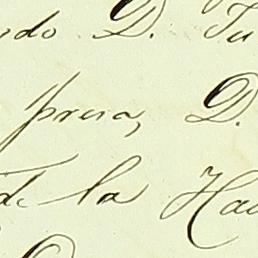 ndo D. Tu
presa, D.
de la Hab